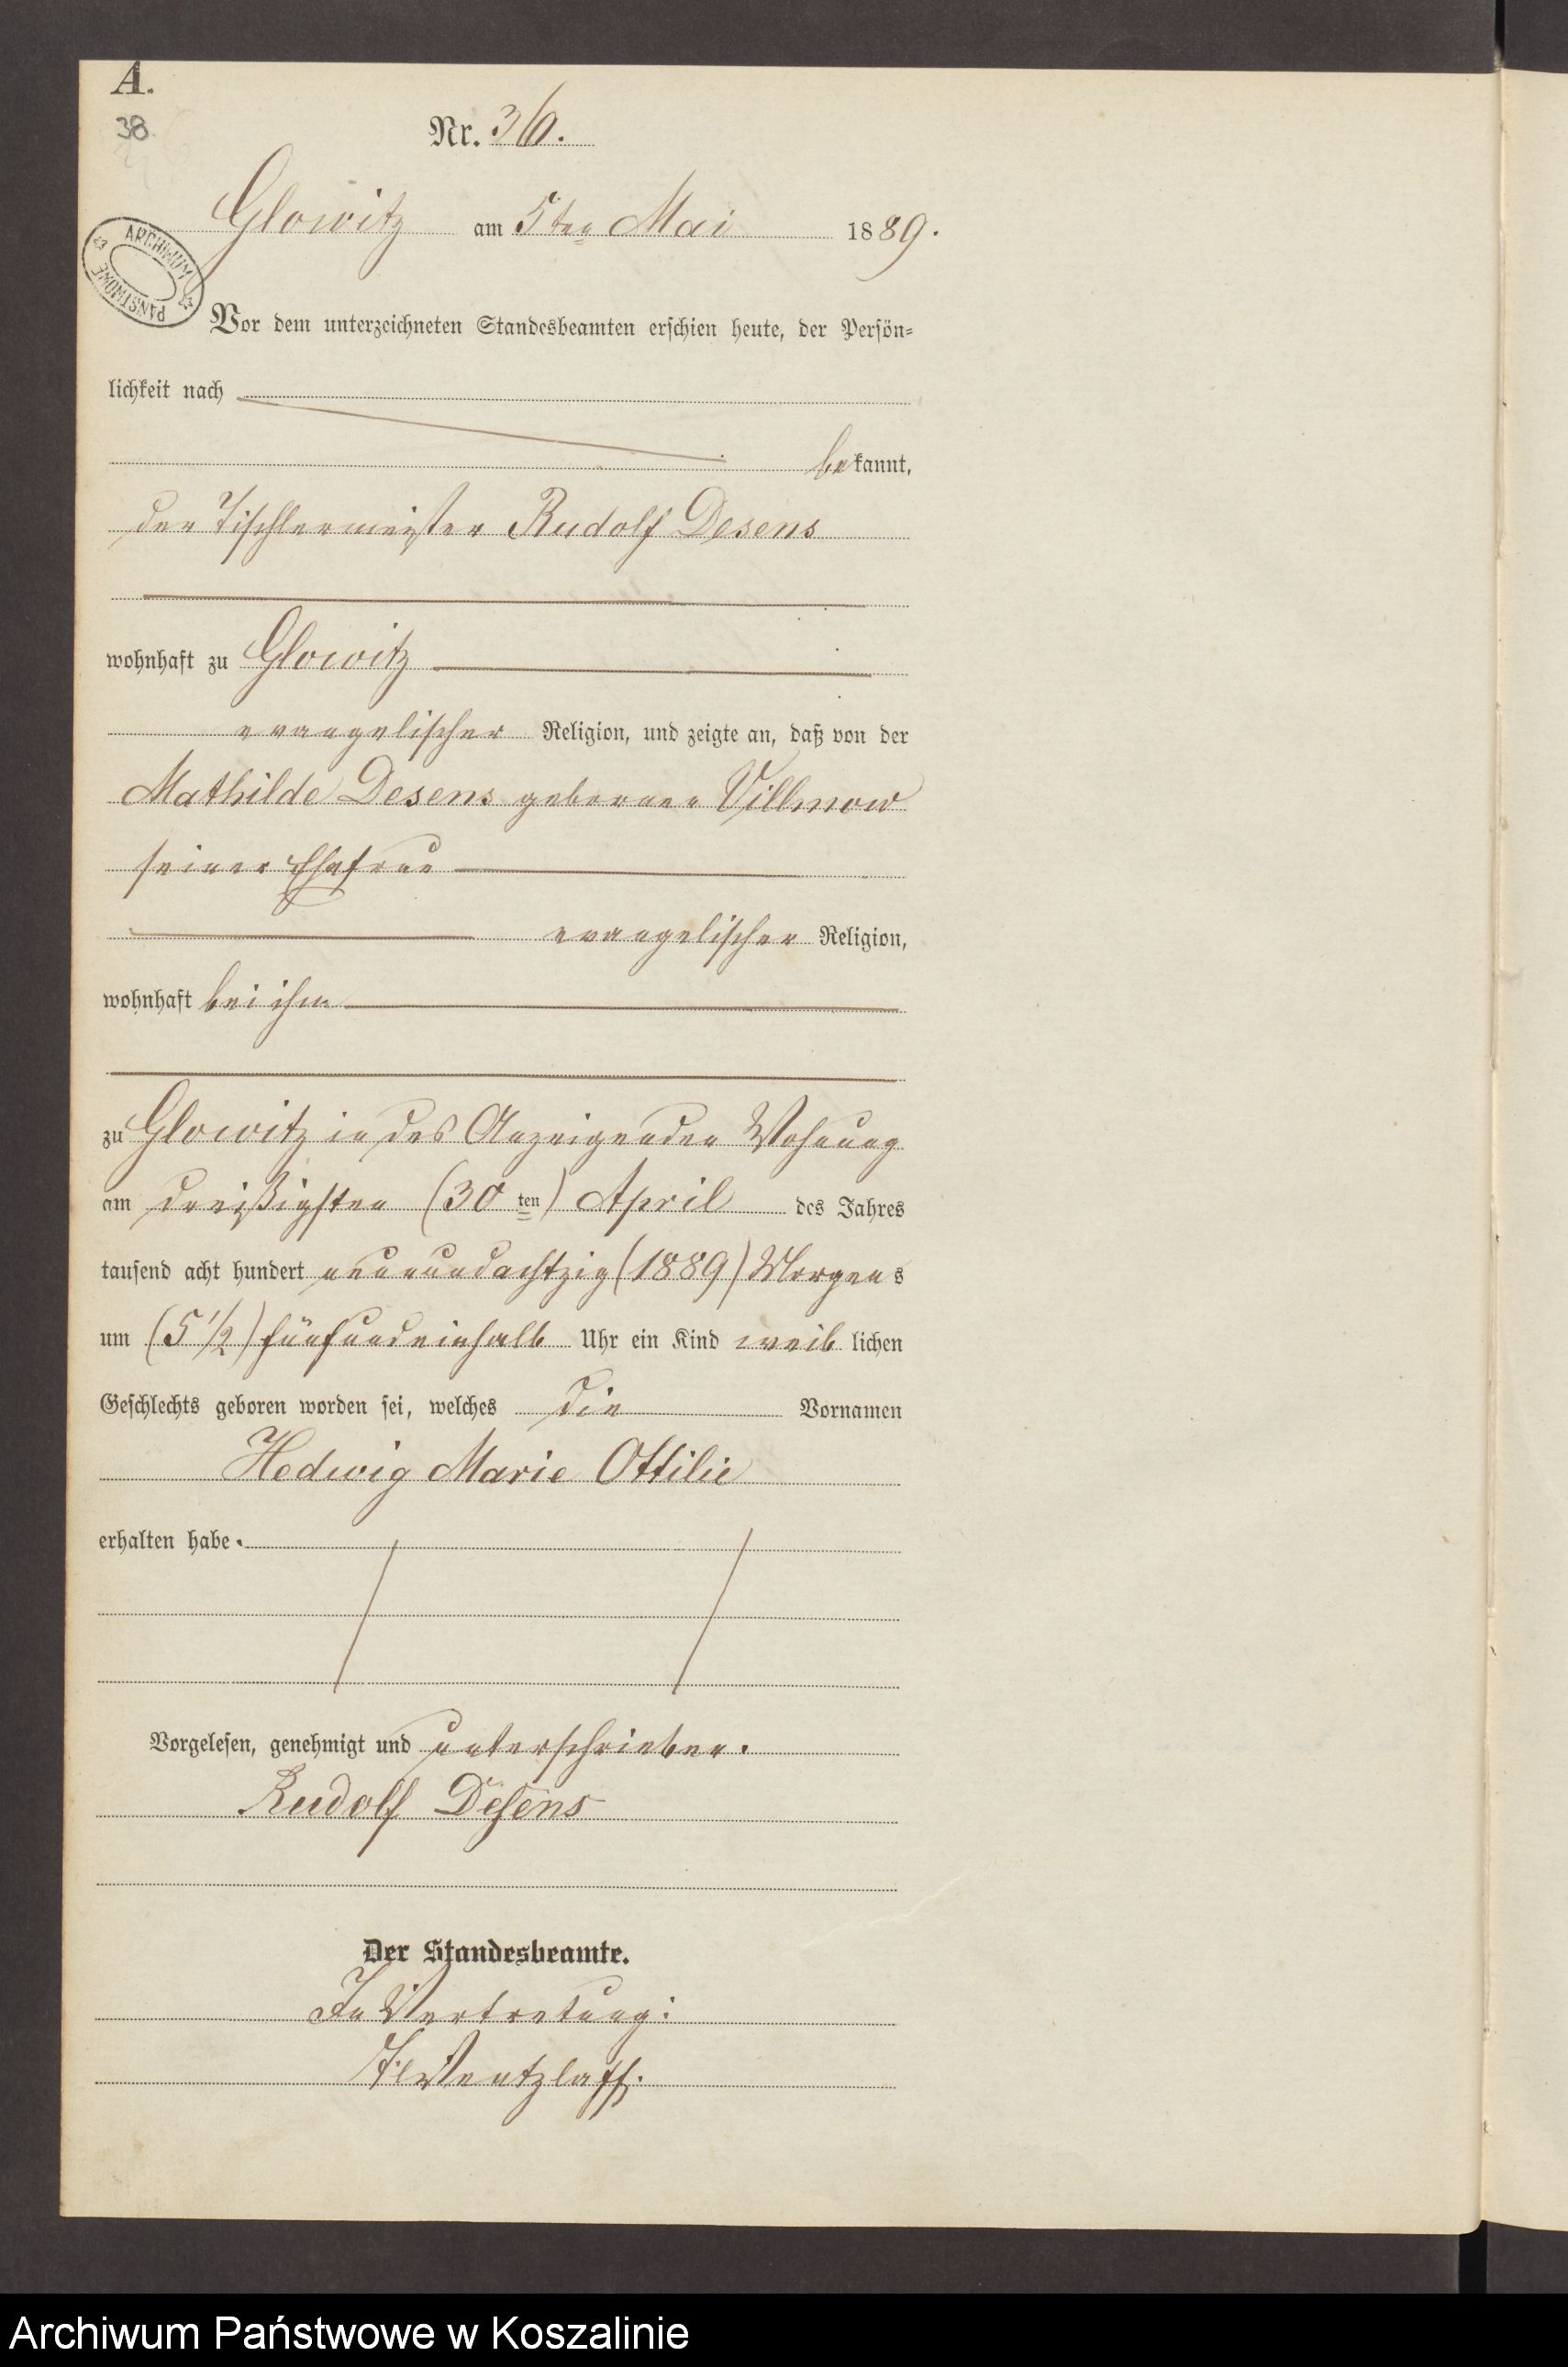 A.
38.
Nr. 36.
Glowitz am 5ten Mai 1889.
ARCHIWUM PAŃSTWOWE
Vor dem unterzeichneten Standesbeamten erschien heute, der Persön-
lichkeit nach
bekannt,
der Tischlermeister Rudolf Desens
wohnhaft zu Glowitz
evangelischer Religion, und zeigte an, daß von der
Mathilde Desens geborenen Villmow
seiner Ehefrau
evangelischer Religion,
wohnhaft bei ihm
zu Glowitz in des Anzeigenden Wohnung
am dreißigsten (30ten) April des Jahres
tausend acht hundert neunundachtzig (1889) Morgens
um (5 1/2) fünfundeinhalb Uhr ein Kind weiblichen
Geschlechts geboren worden sei, welches die Vornamen
Hedwig Marie Ottilie
erhalten habe.
Vorgelesen, genehmigt und unterschrieben.
Rudolf Desens
Der Standesbeamte.
In Vertretung:
Wentzlaff.
Archiwum Państwowe w Koszalinie